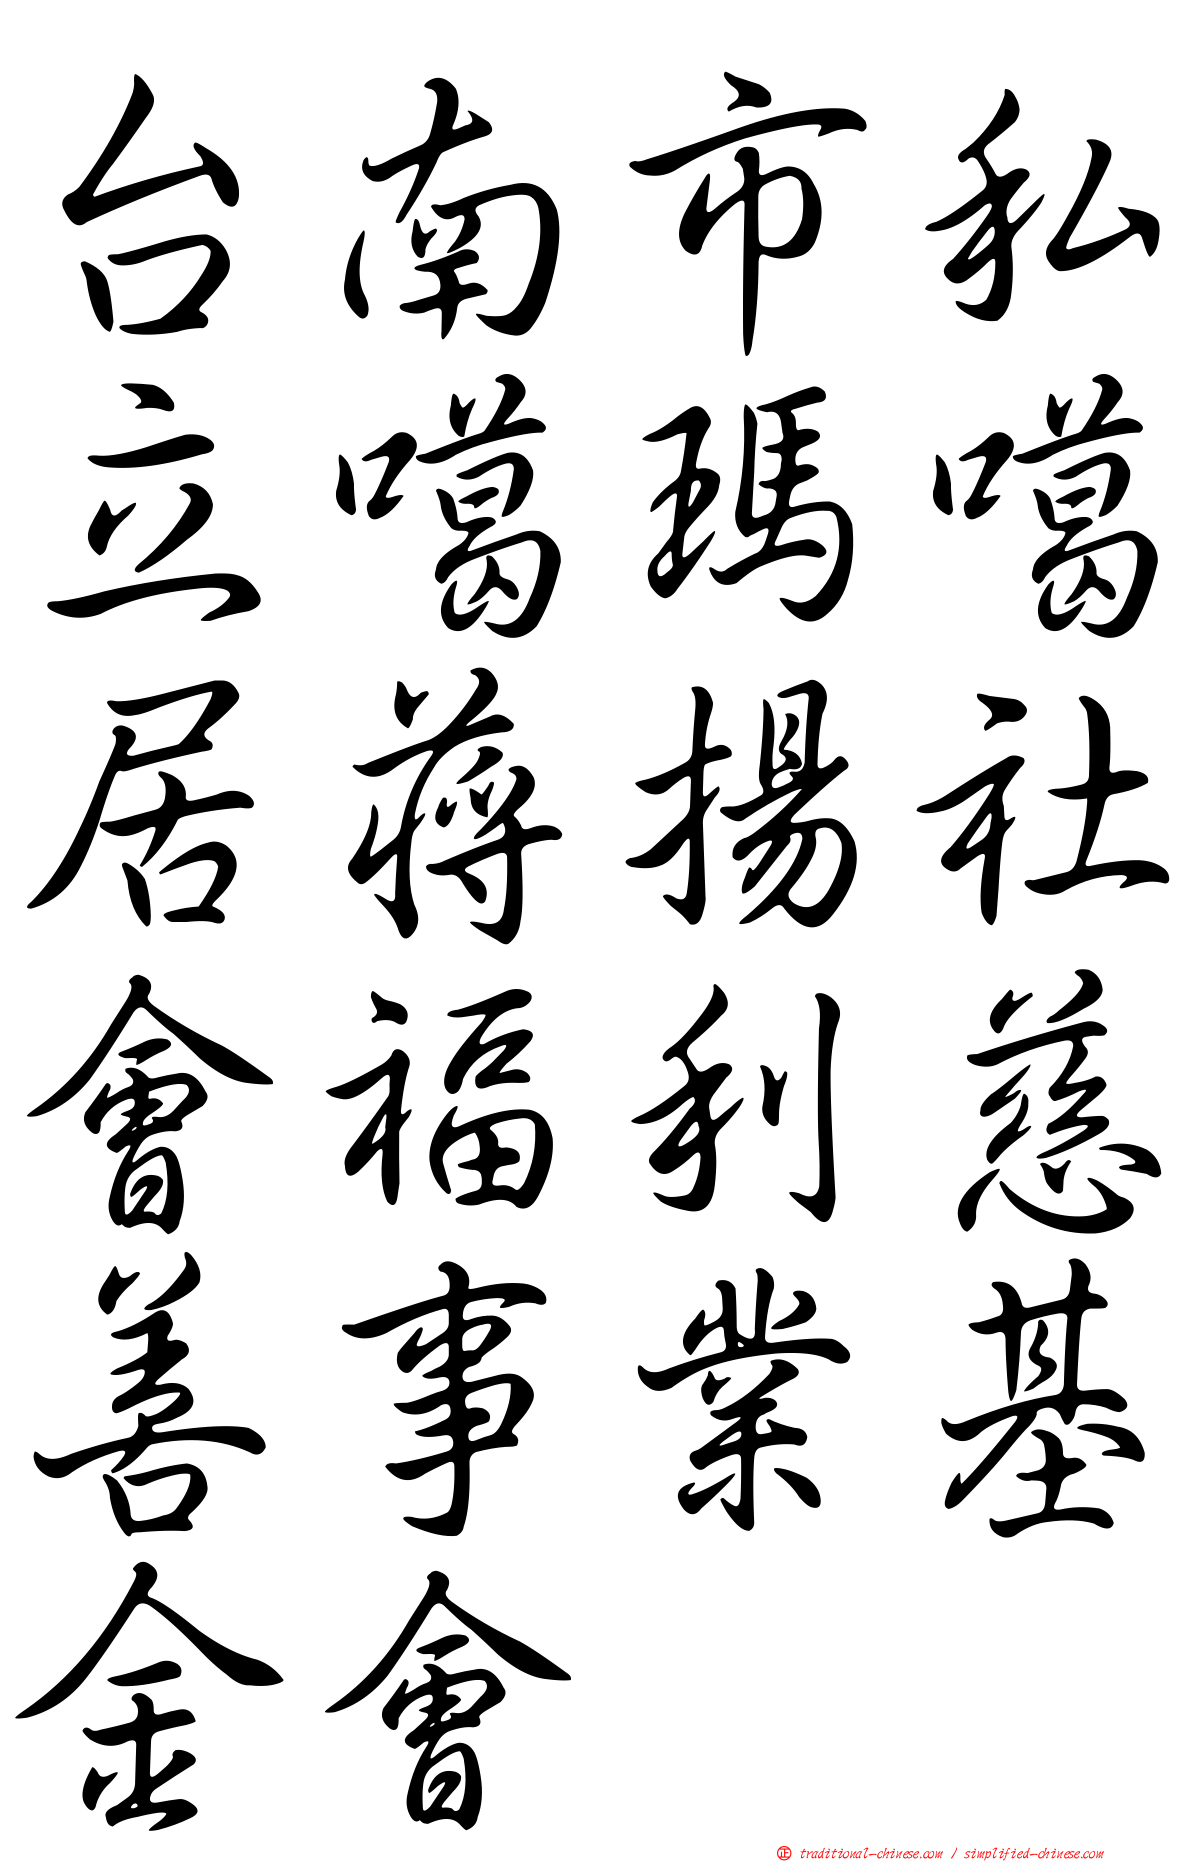 台南市私
立噶瑪噶
居蔣揚社
會福利慈
善事業基
金會
正 traditional-chinese.com / simplified-chinese.com